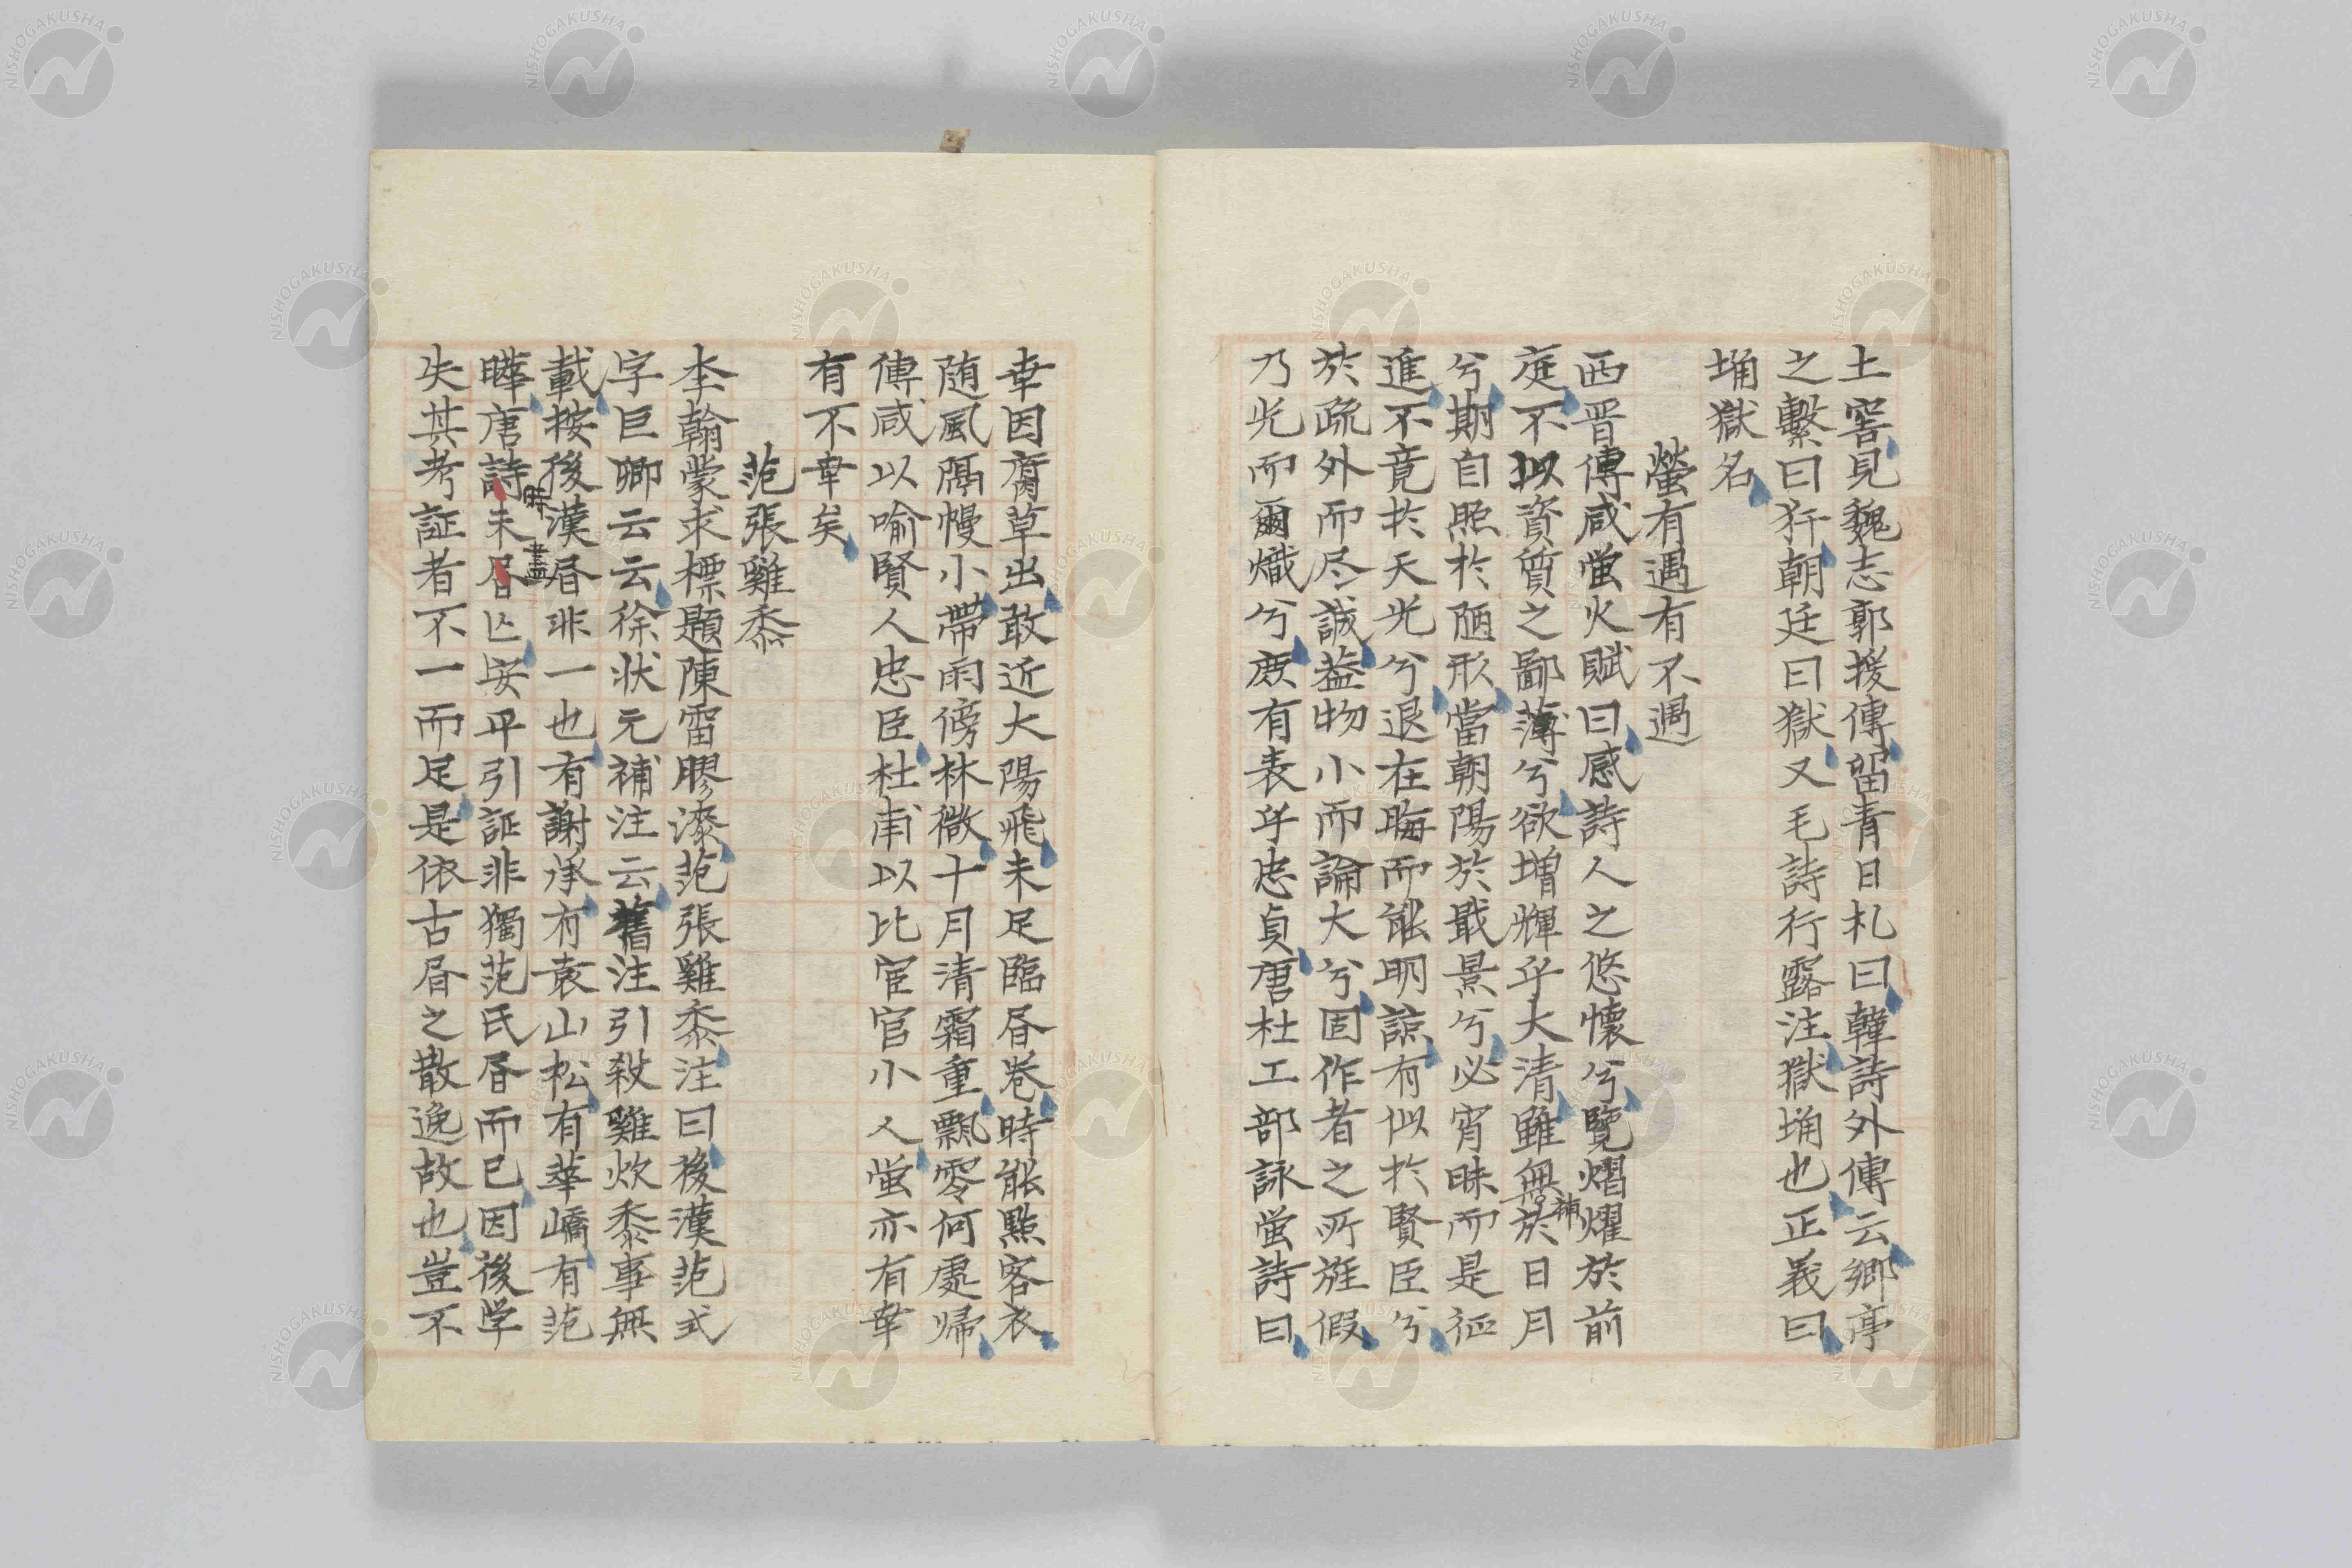 土窖見魏志郭援傳留青日札曰韓詩外傳云鄉亭
之繫曰犴朝廷曰獄又毛詩行露注獄埆也正義曰
埆獄名
螢有遇有不遇
西晋傅咸螢火賦曰感詩人之悠懷兮覽熠燿於前
庭不以資質之鄙薄兮欲增輝乎大清雖無補於日月
兮期自照於陋形當朝陽於戢景兮必宵昧而是征
進不竟於天光兮退在晦而能明諒有似於賢臣兮
於疏外而尽誠蓋物小而論大兮固作者之所旌假
乃光而爾熾兮庶有表乎忠貞唐杜工部詠螢詩曰
幸因腐草出敢近大陽飛未足臨昏卷時能點客衣
随風隔幔小帶雨傍林微十月清霜重飄零何處帰
傅咸以喻賢人忠臣杜甫以比宦官小人螢亦有幸
有不幸矣
范張雞黍
李翰蒙求標題陳雷膠漆范張雞黍注曰後漢范式
字巨卿云云徐状元補注云舊注引殺雞炊黍事無
載按後漢昏非一也有謝承有袁山松有華嶠有范
曄唐詩時未昏盡亾安平引証非獨范氏昏而已因後学
失其考証者不一而足是依古昏之散逸故也豈不
NISHOGAKUSHA